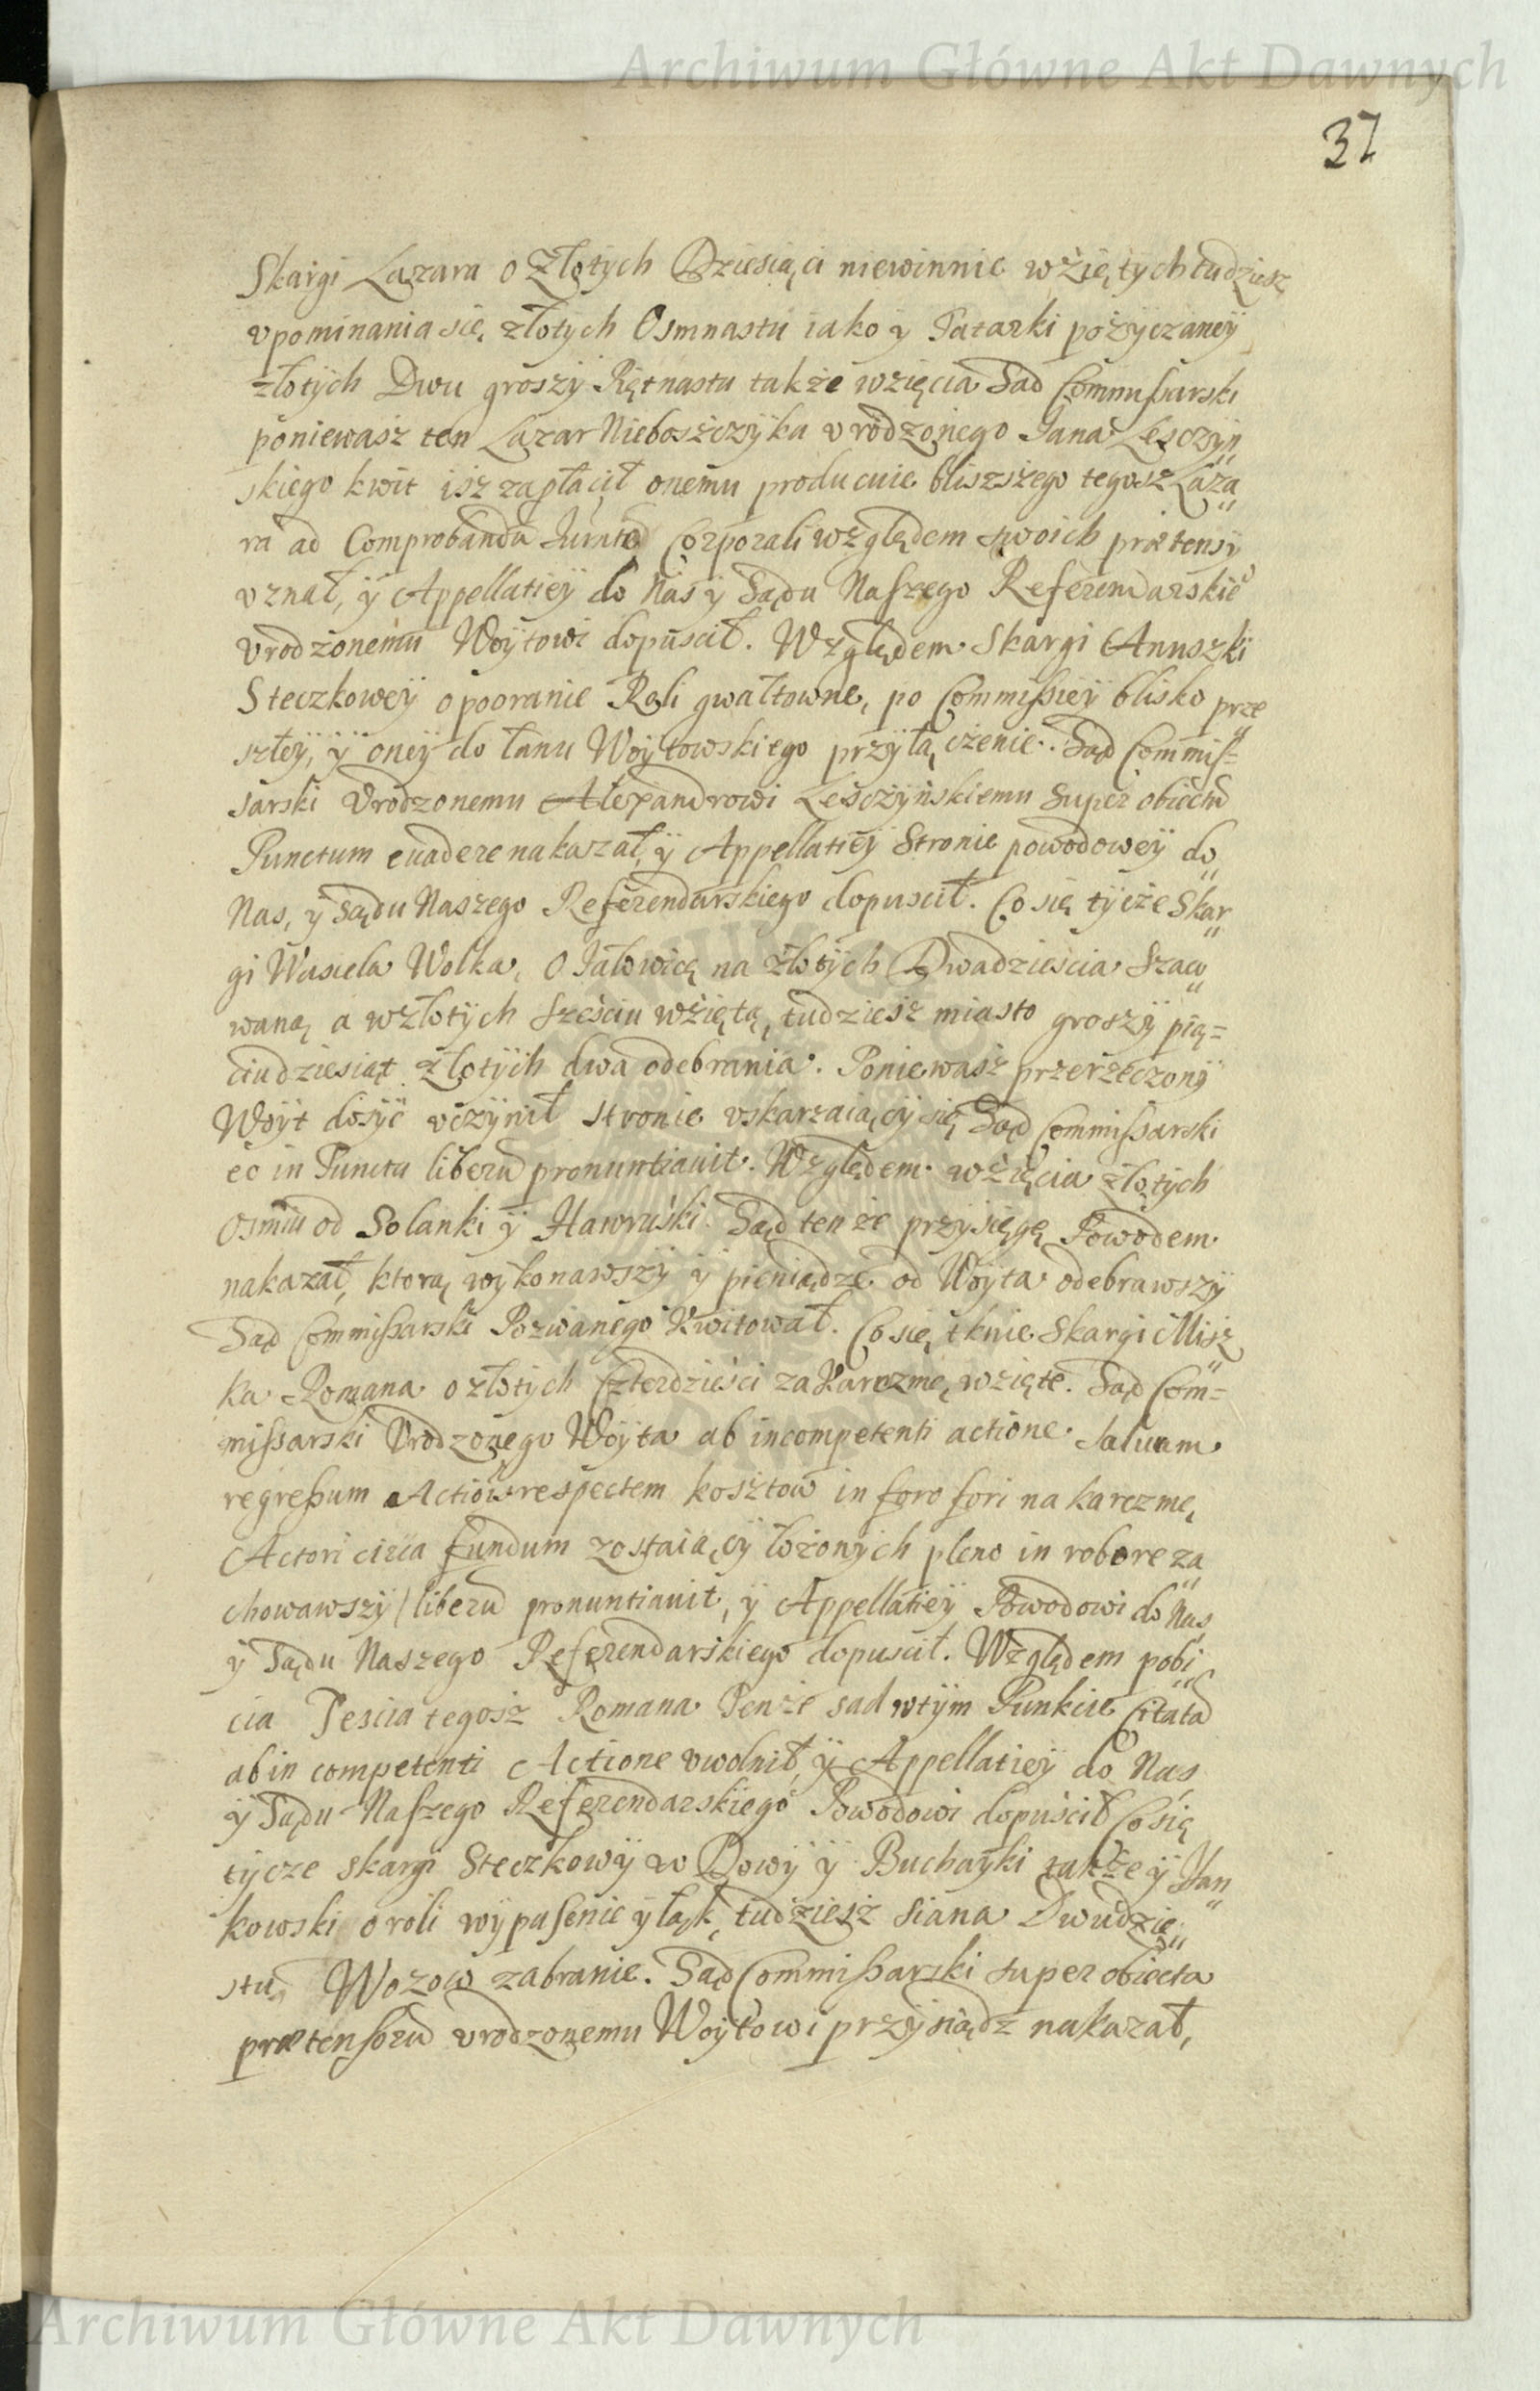 Archiwum Główne Akt Dawnych
37
Skargi Lazara o Złotych Dziesiąci niewinnie wziętych tudziesz
vpominania się złotych Osmnastu iako y Tatarki pożyczaney
złotych Dwu groszy Piętnastu także wzięcia Sąd Commissarski
poniewasz ten Lazar Nieboszczyka vrodzonego Jana Lesczyn„
skiego kwit isz zapłacił onemu producuie bliszszego tegosz Laza„
ra ad Comprobanda Corporali względem swoich prætensy
vznał, y Appellatiey do Nas y Sądu Naszego Referendarskie
Vrodzonemu Woytowi dopuscił. Względem Skargi Anuszki
Steczkowey o pooranie Roli gwałtowne, po Commissiey blisko prze„
szłey, y oney do łanu Woytowskiego przyłączenie. Sąd Commis=
sarski Vrodzonemu Alexandrowi Leszczyńskiemu super obiectu
Punctum euadere nakazał, y Appellatiey Stronie powodowey do„
Nas, y Sądu Naszego Referendarskiego dopuscił. Co się tycze Skar„
gi Wasiela Wolka, o Jałowicę na złotych Dwadziescia Szaco„
waną a w złotych sześciu wziętą, tudziesz miasto groszy pię=
ciudziesiąt złotych dwa odebrania. Poniewasz przerzeczony
Woyt dosyć vczynił stronie vskarzaiącySię, Sąd Commissarski
eo in Punctu liberu pronuntiauit. Względem wzięcia złotych
Osmiu od Solanki y Hawruśki. Sąd tenże przysięgę Powodem
nakazał, ktorą wykonawszy y pieniądze od Woyta odebrawszy
Sąd Commissarski Pozwanego Kwitował. Co się tknie Skargi Misz„
ka Romana o złotych Czterdzieści za Karczmę wzięte. Sąd Com=
missarski Vrodzonego Woyta ab incompetenti actione saluam
regressum respectem kosztow in foro fori na karczmę
Actori circa fundum zostaiący łożonych pleno in robore za„
chowawszy / liberu pronuntiauit, y Appellatiey Powodowi do Nas
y Sądu Naszego Referendarskiego dopuscił. Względem pobi„
cia Tescia tegosz Romana Tenże sad w tym Punkcie Citatu
ab in competenti Actione vwolnił, y Appellatiey do Nas
y Sądu Naszego Referendarskiego Powodowi dopuścił Co się
tycze skargi Steczkowy w Dowy y Buchayki także y Jan„
kowski o roli wypasenie y łąk, tudziesz siana Dwudzie„
stu Wozow zabranie. Sąd Commissarski super obiecta
prætensoru vrodzonemu Woytowi przysiądz nakazał,
Archiwum Główne Akt Dawnych